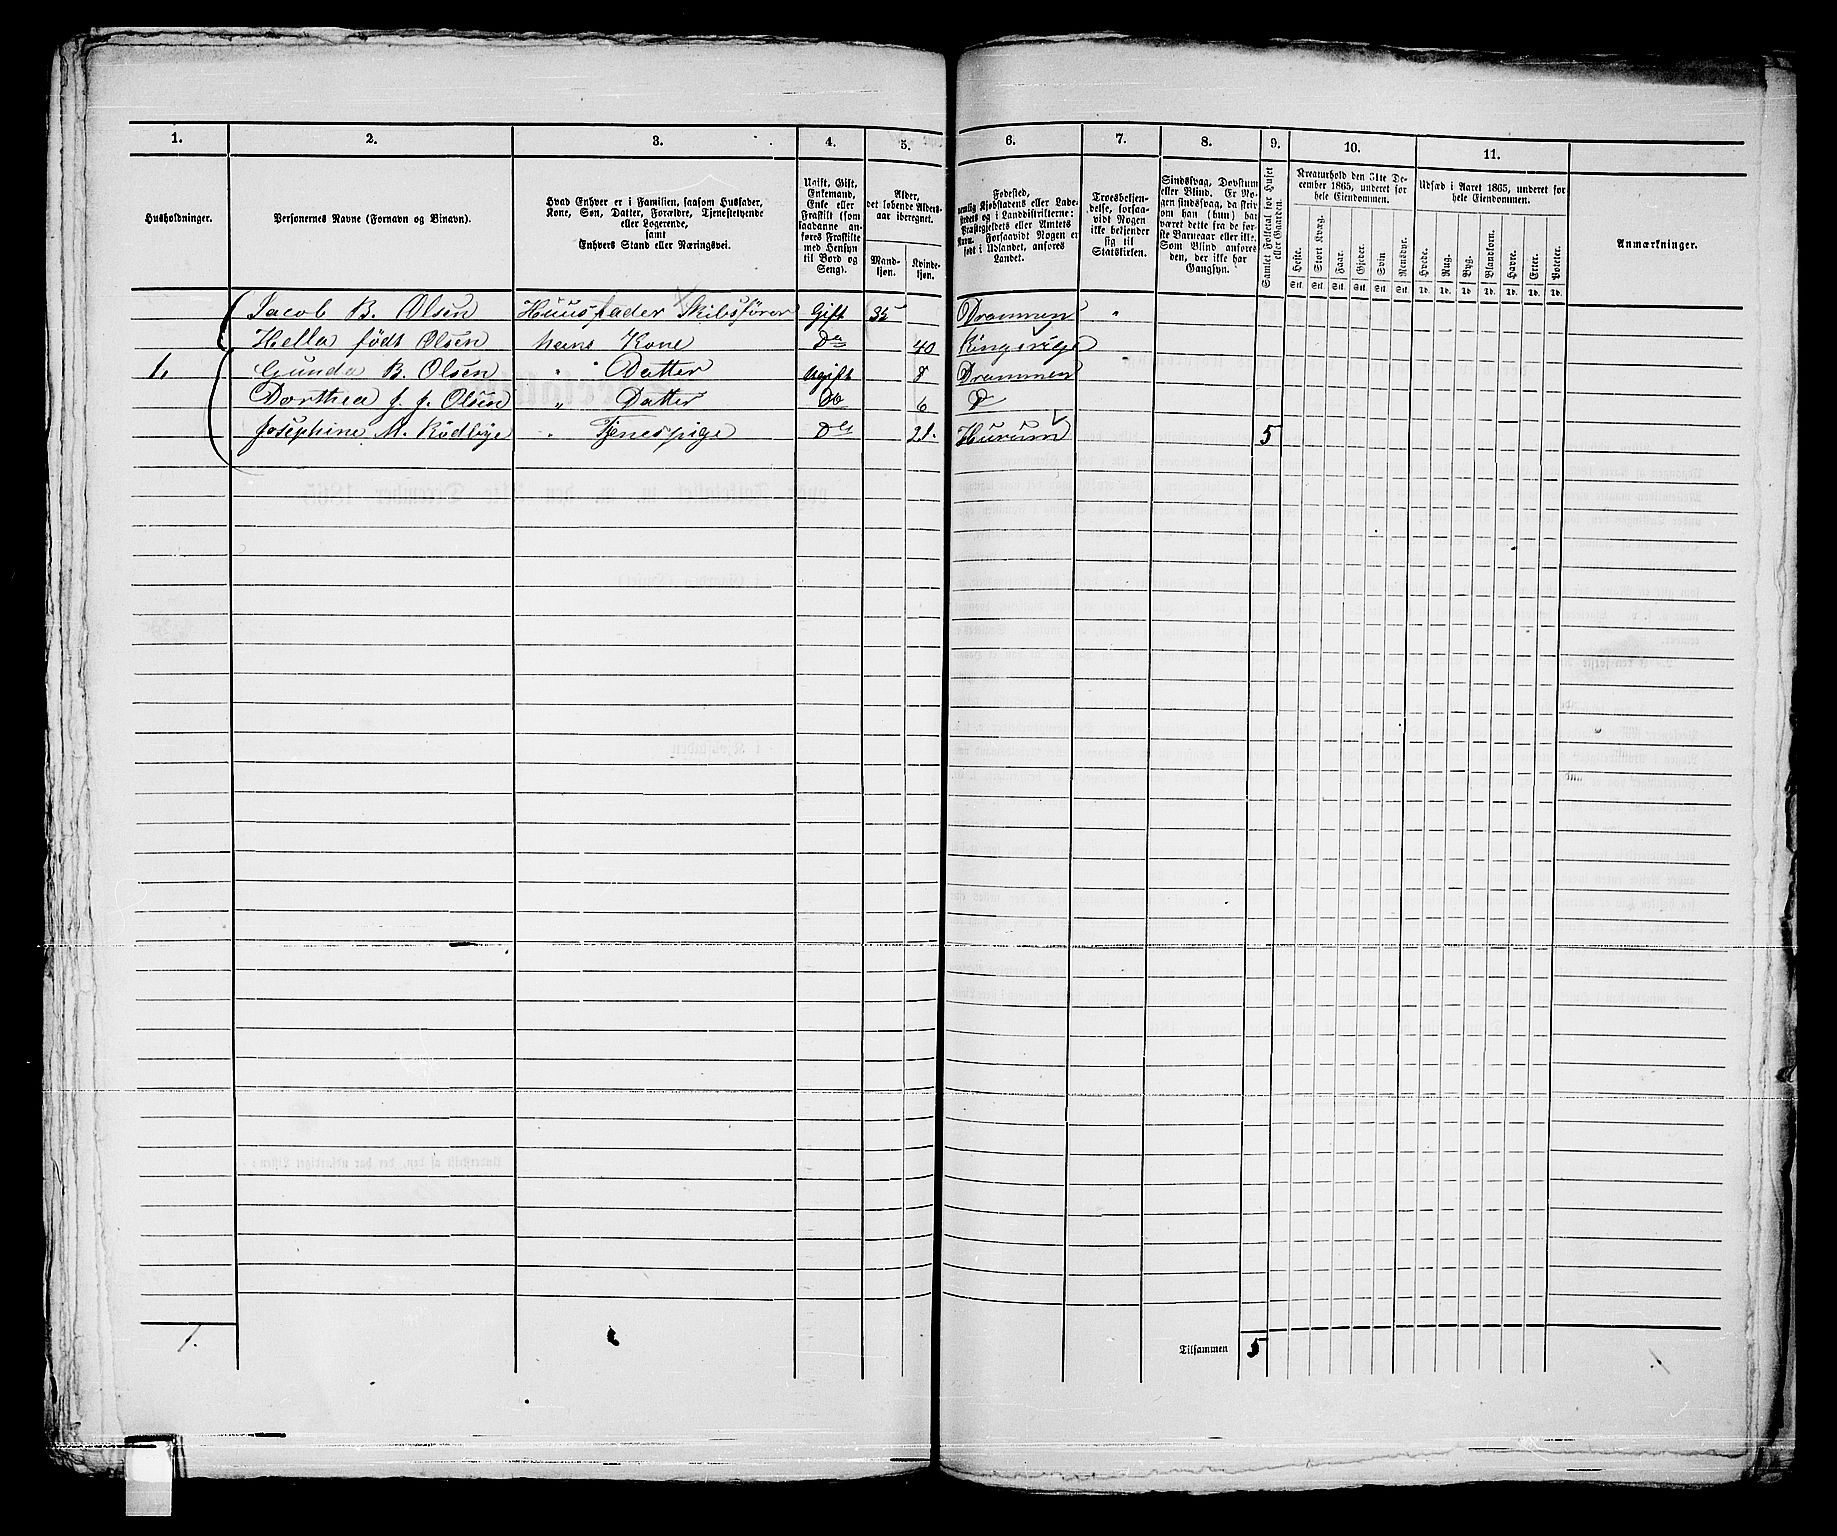 1. 2. 3. 4. 5. 6. 7. 8. 9. 10. 11.
Husholdninger.
Personernes Navne (Fornavn og Binavn).
Hvad Enhver er i Familien, saasom Husfader,
Kone, Søn, Datter, Forældre, Tjenestetyende
eller Logerende,
samt
Enhvers Stand eller Næringsvei.
Ugift, Gift,
Enkemand,
Enke eller
Fraskilt (som
saadanne an-
føres Fraskilte
med Hensyn
til Bord og
Seng).
Alder,
det løbende Alders-
aar iberegnet.
Mand-
kjøn.
Kvinde-
kjøn.
Fødested,
nemlig Kjøbstadens eller Lade-
stedets og i Landdistrikterne:
Præstegjeldets eller Amtets
Navn. Forsaavidt Nogen er
født i Udlandet, anføres
Landet.
Troesbekjen-
delse, forsaa-
vidt Nogen
ikke bekjender
sig til
Statskirken.
Sindssvag, Døvstum
eller Blind. Er No-
gen sindssvag, da skriv
om han (hun) har
været dette fra de før-
ste Barneaar eller ikke.
Som Blind anføres
den, der ikke har
Gangsyn.
Samlet Folketal for Huset
eller Gaarden.
Kreaturhold den 31te De-
cember 1865, underet for
hele Eiendommen.
Heste. Stort Kvæg. Faar. Gjeder. Svin Rensdyr.
Stk. Stk. Stk. Stk. Stk. Stk.
Udsæd i Aaret 1865, underet for
hele Eiendommen.
Hvede. Rug. Byg. Blandkorn. Havre. Erter. Poteter.
Td. Td. Td. Td. Td. Td. Td.
Anmærkninger.
Jacob B. Olsen Huusfader Skibsfører Gift 35 Drammen "
Hella født Olsen hans Kone Do 40 Ringerige
1. Gunda B. Olsen " Datter Ugift 8 Drammen "
Dorthea J. J. Olsen " Datter Do 6 D
Josephine M. Rödbye " Tjenespige Do 21. Hurum 5
1.
Tilsammen 5